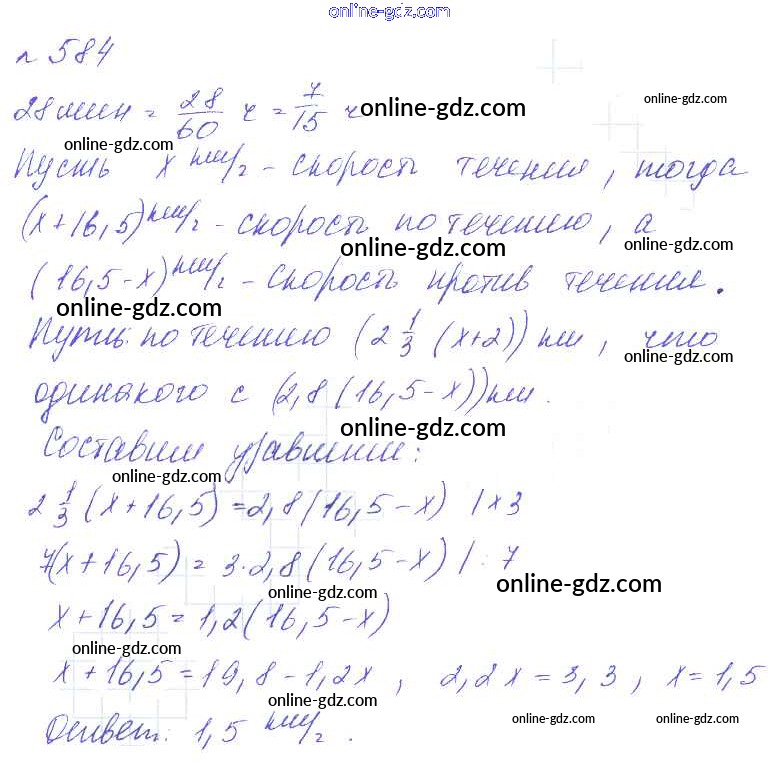 online-gdz.com
№ 584
28 мин = 28/60 ч = 7/15 ч online-gdz.com online-gdz.com
online-gdz.com
Пусть x км/ч - скорость течения, тогда
(x+16,5) км/ч - скорость по течению, а
online-gdz.com online-gdz.com
(16,5-x) км/ч - скорость против течения.
online-gdz.com
Путь по течению (2 1/3 (x+2)) км, что
online-gdz.com
одинаково с (2,8(16,5-x)) км.
online-gdz.com
Составим уравнение:
online-gdz.com
2 1/3 (x+16,5) = 2,8(16,5-x) | x 3
7(x+16,5) = 3·2,8(16,5-x) | : 7
online-gdz.com online-gdz.com
x+16,5 = 1,2(16,5-x)
online-gdz.com
x+16,5 = 19,8-1,2x, 2,2x = 3,3, x = 1,5
online-gdz.com
Ответ: 1,5 км/ч.
online-gdz.com online-gdz.com